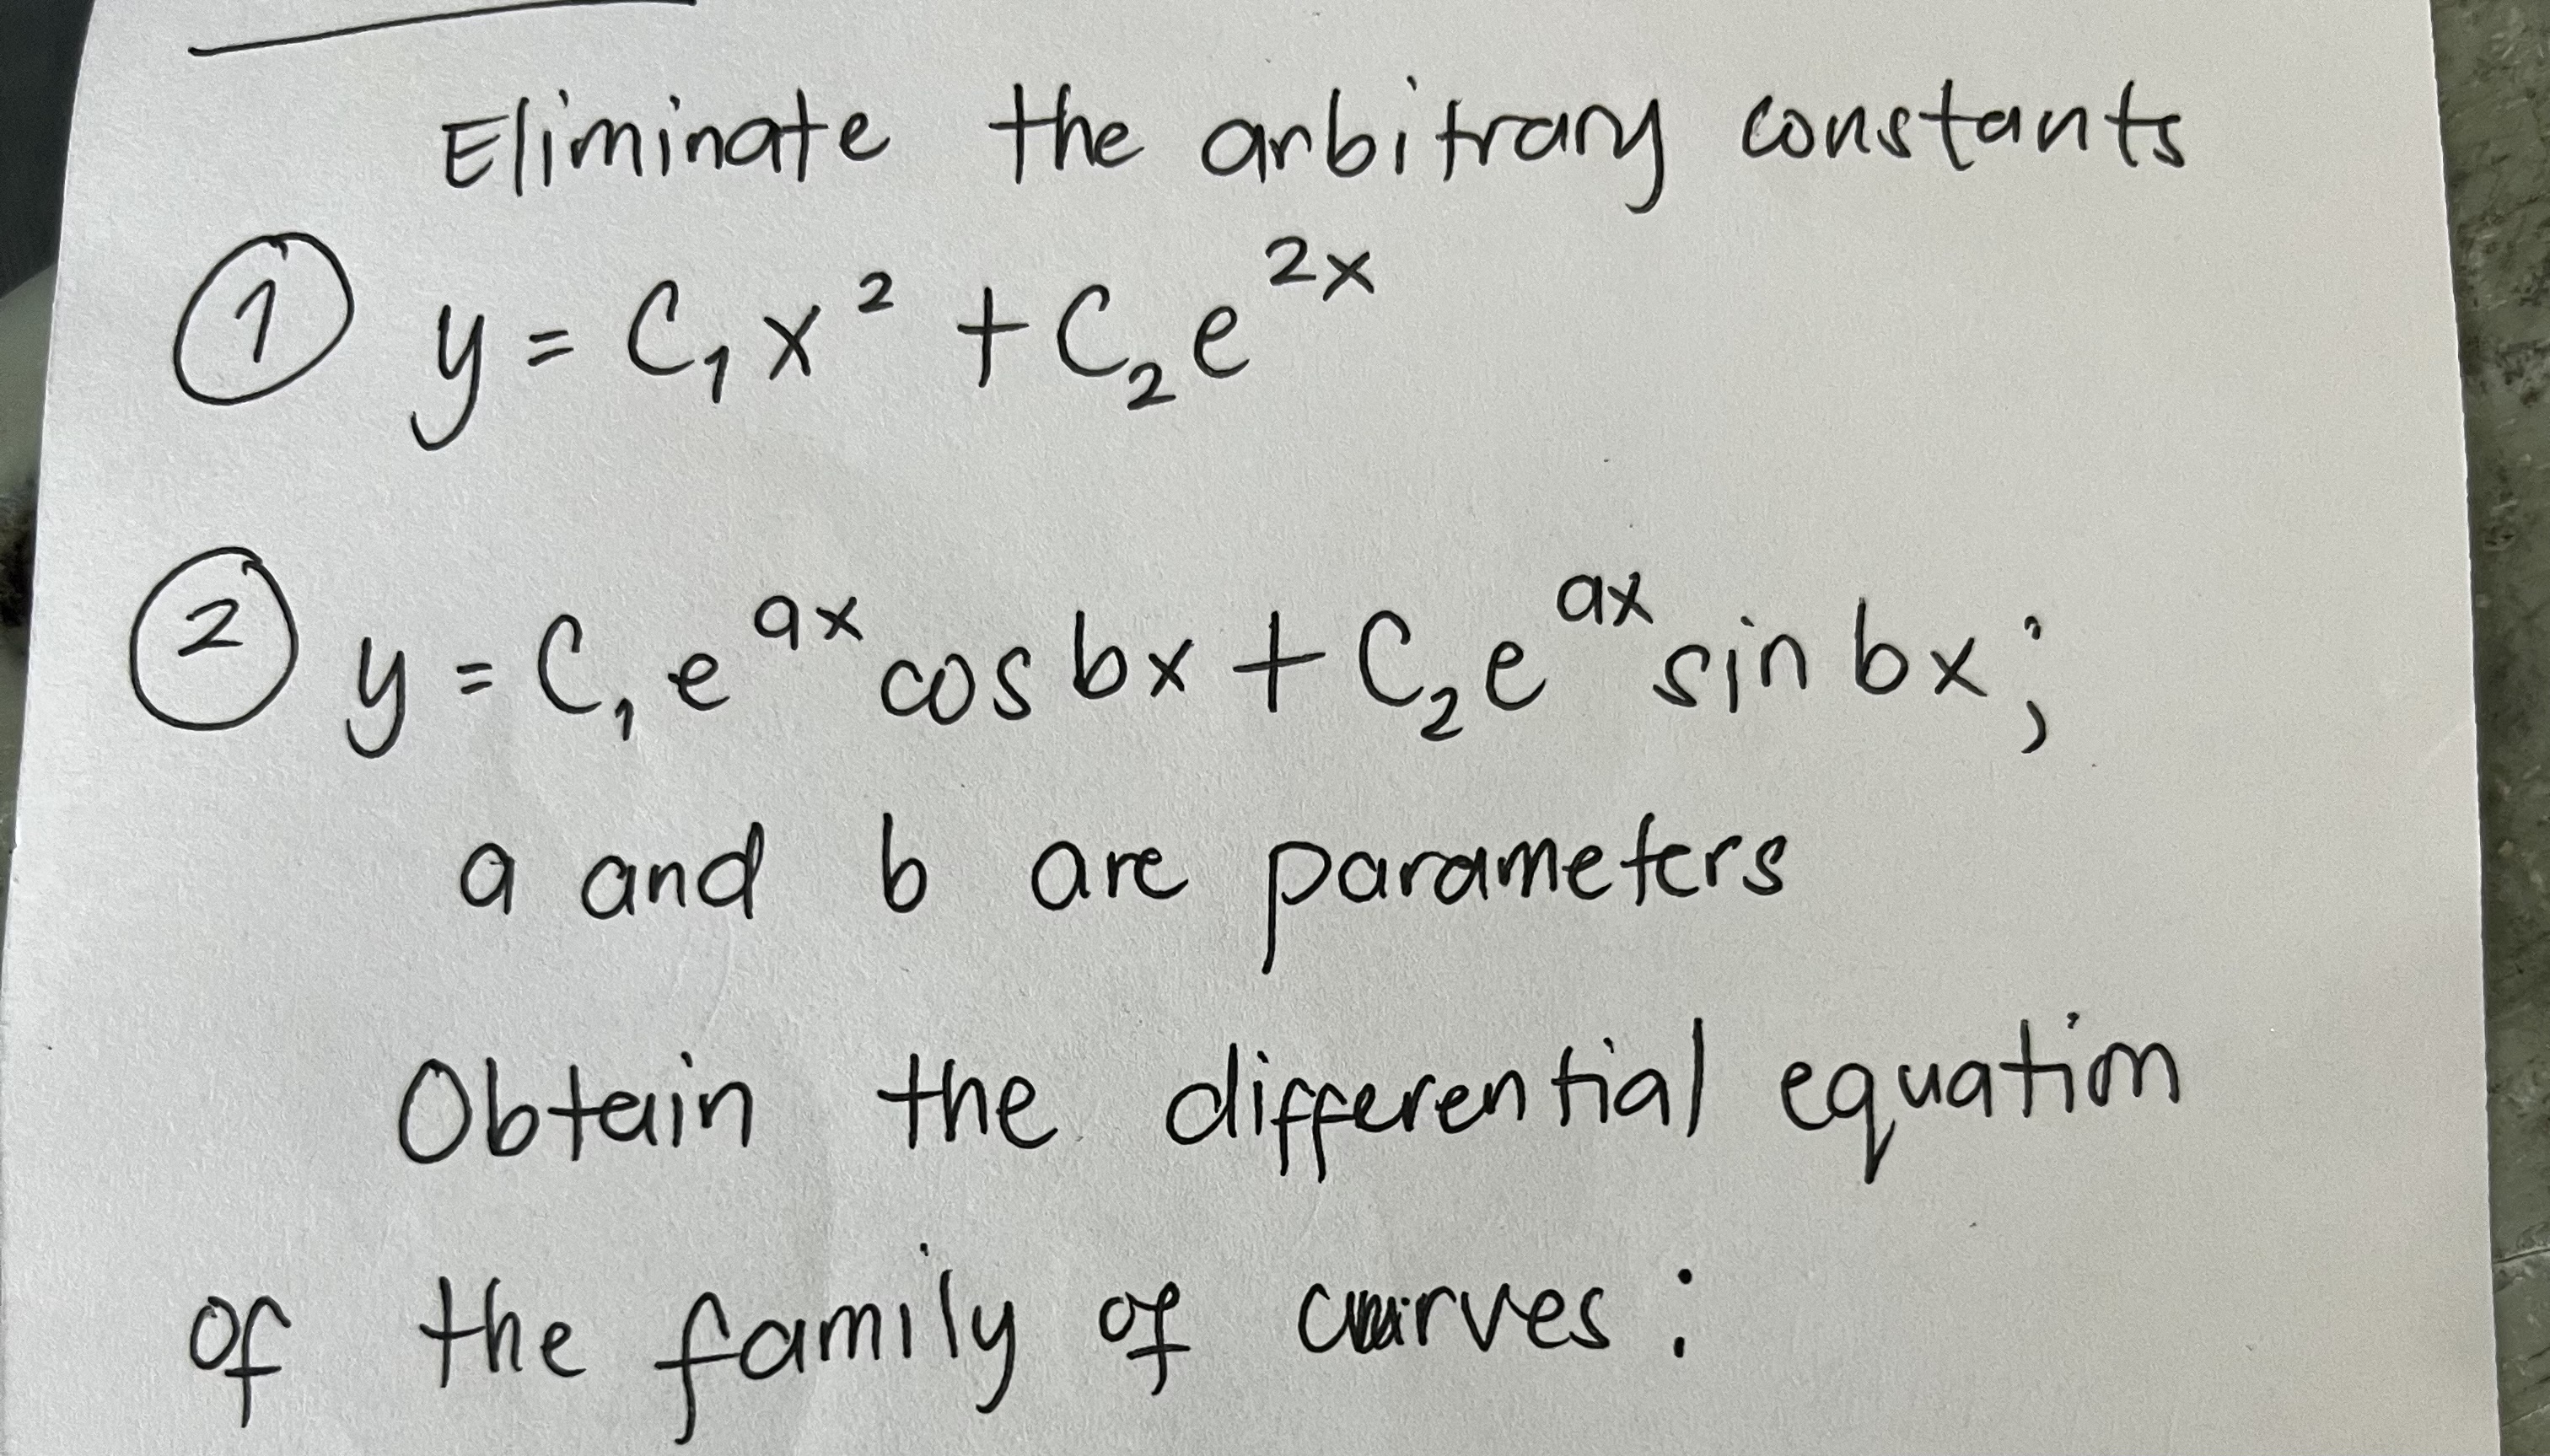 Eliminate the arbitrary constants
① y = C₁x² + C₂e²ˣ
② y = C₁eᵃˣ cos bx + C₂eᵃˣ sin bx;
a and b are parameters
Obtain the differential equation
of the family of curves: